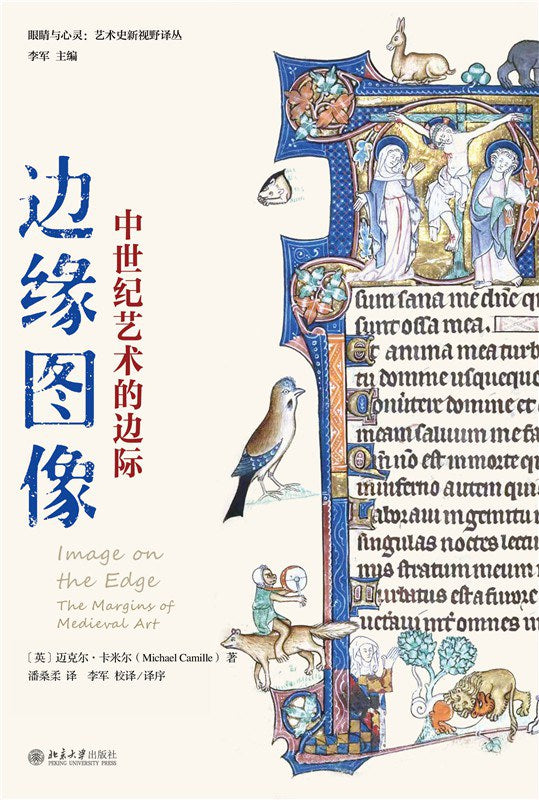 眼睛与心灵：艺术史新视野译丛
李军 主编
边缘图像
中世纪艺术的边际
sum sana me dñe qu
sunt ossa mea.
Et anima mea turb
tu domine usqueque
Convertere domine et
meam saluum me fa
Qm̃ nõ est in morte qu
in inferno autem qui
Laboraui in gemitu
singulas noctes lectu
mis stratum meum
Turbatus est a furore
omnes in
Image on
the Edge
The Margins of
Medieval Art
［英］迈克尔·卡米尔（Michael Camille）著
潘桑柔 译 李军 校译/译序
北京大学出版社
PEKING UNIVERSITY PRESS